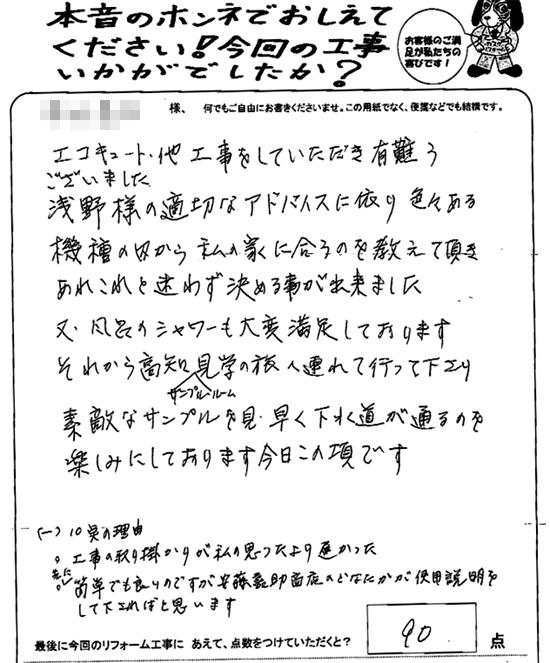 本音のホンネでおしえて
ください!今回の工事
いかがでしたか?
お客様のご満
足が私たちの
喜びです!
様、 何でもご自由にお書きくださいませ。この用紙でなく、便箋などでも結構です。
エコキュート・他 工事をしていただき有難う
ございました
浅野様の適切なアドバイスに依り 色々ある
機種の内から 私の家に合うのを教えて頂き
あれこれと迷わず決める事が出来ました
又・風呂のシャワーも大変満足しております
それから高知見学の旅へ連れて行って下さり
サンプルルーム
素敵なサンプルを見・早く下水道が通るのを
楽しみにしております今日この頃です
(一) 10点の理由
。工事の取り掛かりが私の思ったより遅かった
。簡単でも良いのですが安藤嘉助商店のどなたかが使用説明を
先に
して下さればと思います
最後に今回のリフォーム工事に あえて、点数をつけていただくと? 90 点